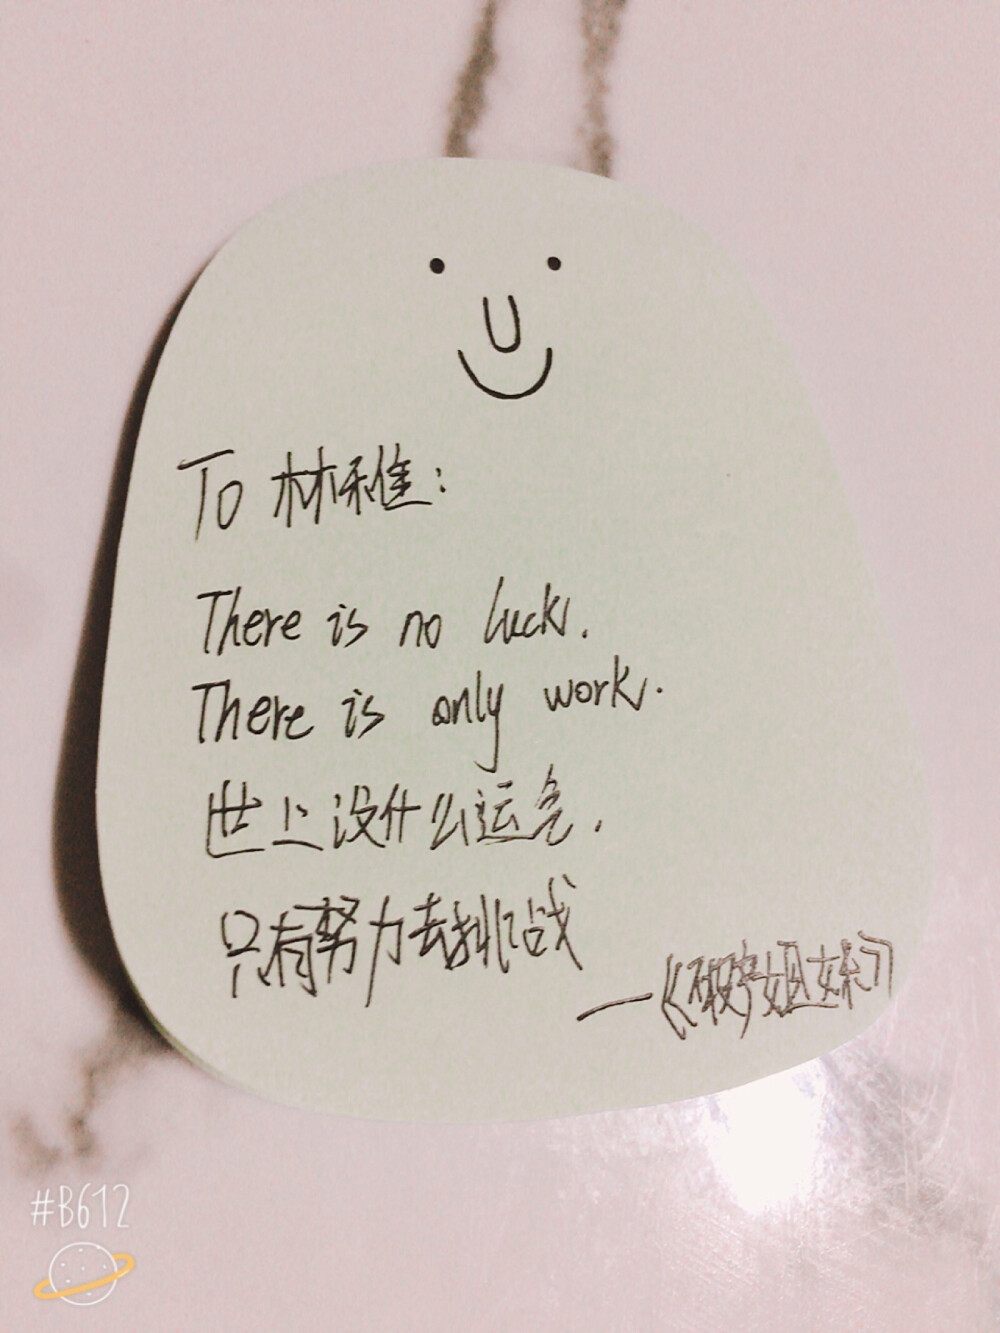 To 林稚:
There is no luck.
There is only work.
世上没什么运气.
只有努力去挑战
—《破产姐妹》
#B612